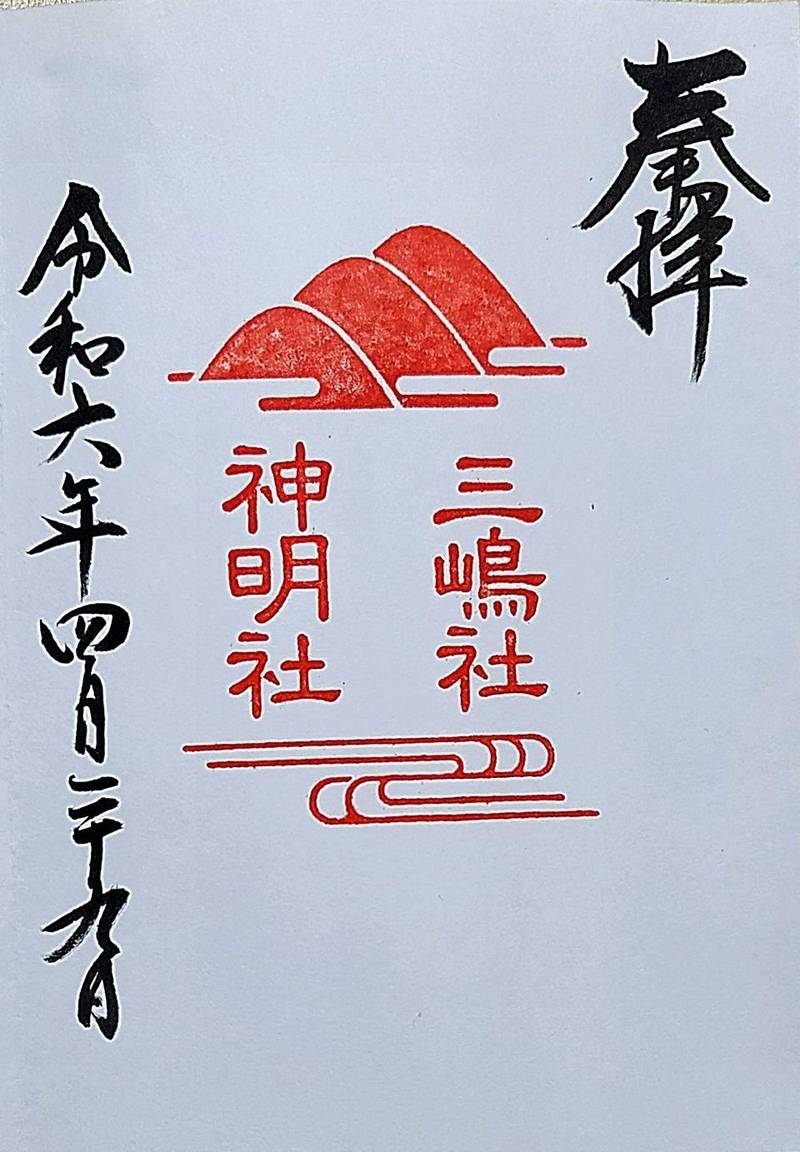 奉拝
三嶋社
神明社
令和六年四月二十九日